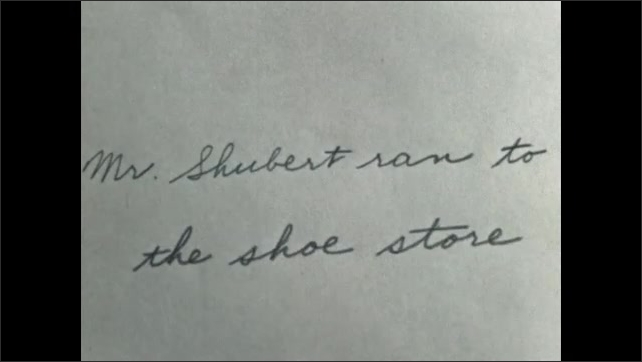 Mr. Shubert ran to
the shoe store